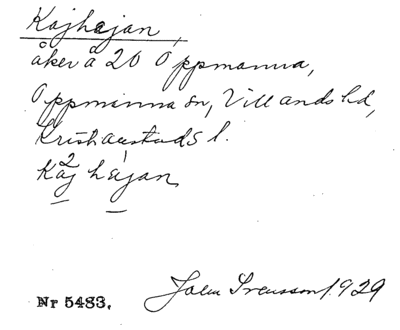 Kajhejan,
åker å 20 Oppmanna,
Oppmanna sn, Villands hd,
Kristianstads l.
kaj hejan
Nr 5483. John Svensson 1929